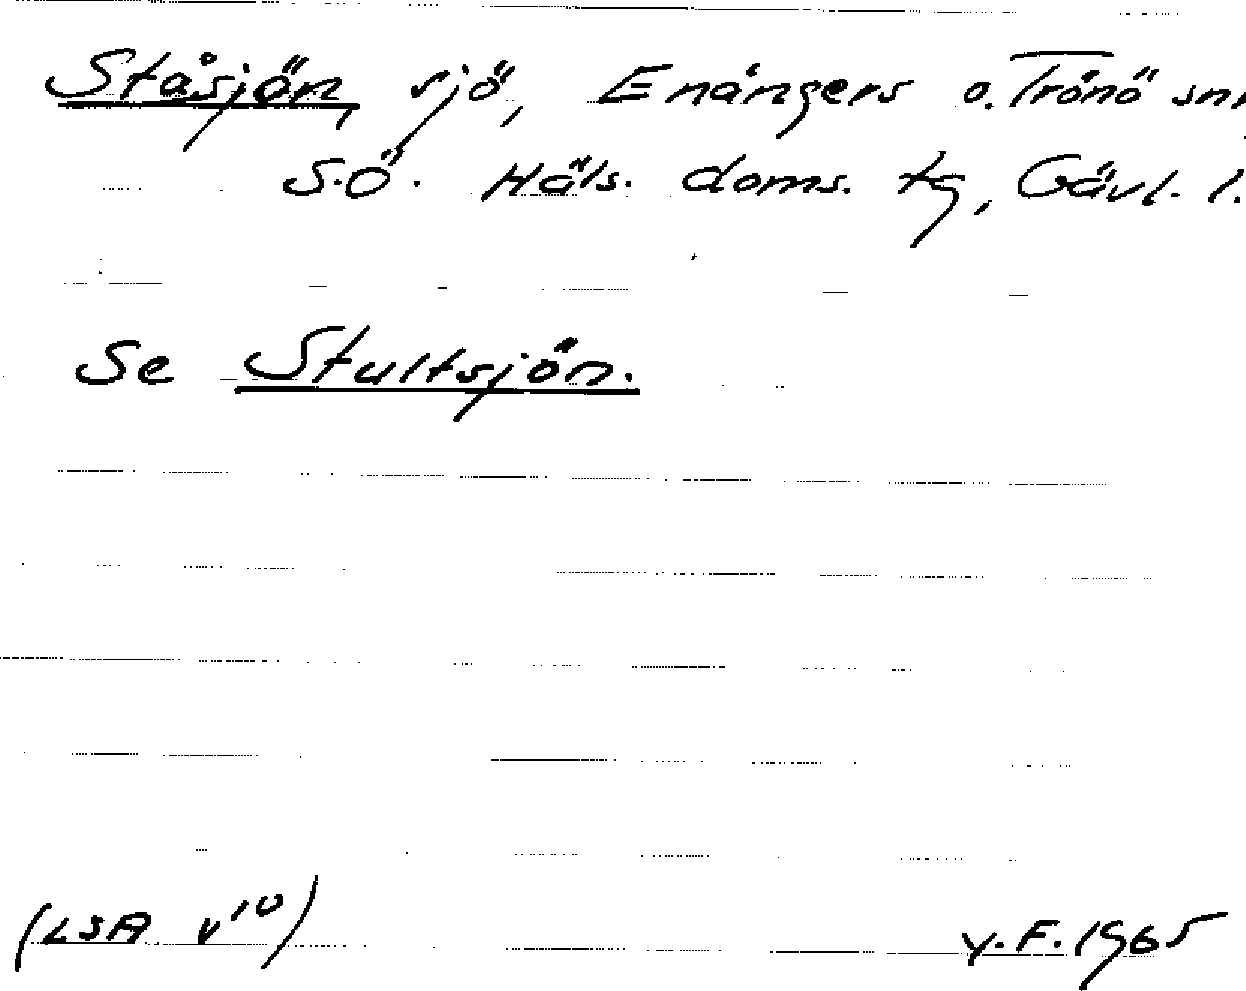 Ståsjön, sjö, Enångers o. Trönö snr
S.Ö. Häls. doms. tg, Gävl. l.
Se Stultsjön.
(LSA v¹⁰) Y.F. 1965